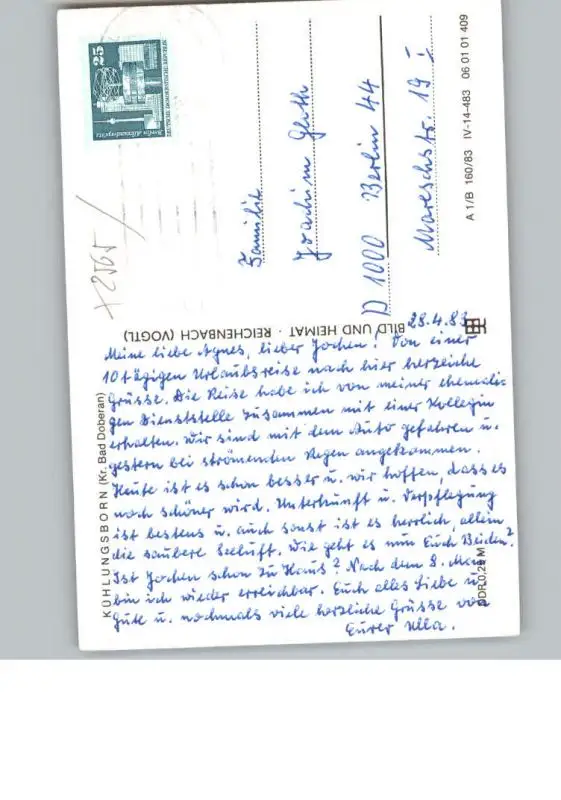 28.4.83
Meine liebe Agnes, lieber Jochen! Von einer
10tägigen Urlaubsreise nach hier herzliche
Grüsse. Die Reise habe ich von meiner ehemali-
gen Dienststelle zusammen mit einer Kollegin
erhalten. Wir sind mit dem Auto gefahren u.
gestern bei strömenden Regen angekommen.
Heute ist es schon besser u. wir hoffen, dass es
noch schöner wird. Unterkunft u. Verpflegung
ist bestens u. auch sonst ist es herrlich, allein
die saubere Seeluft. Wie geht es nun Euch Beiden?
Ist Jochen schon zu Haus? Nach dem 8. Mai
bin ich wieder erreichbar. Euch alles Liebe u.
Gute u. nochmals viele herzliche Grüsse von
Eurer Ulla.
KÜHLUNGSBORN (Kr. Bad Doberan)
BILD UND HEIMAT · REICHENBACH (VOGTL)
DDR 0,25 M
25
DEUTSCHE DEMOKRATISCHE REPUBLIK
Berlin Alexanderplatz
Familie
Joachim
D 1000 Berlin 44
Mareschstr. 19 I
A 1/B 160/83 IV-14-483 06 01 01 409
x2565